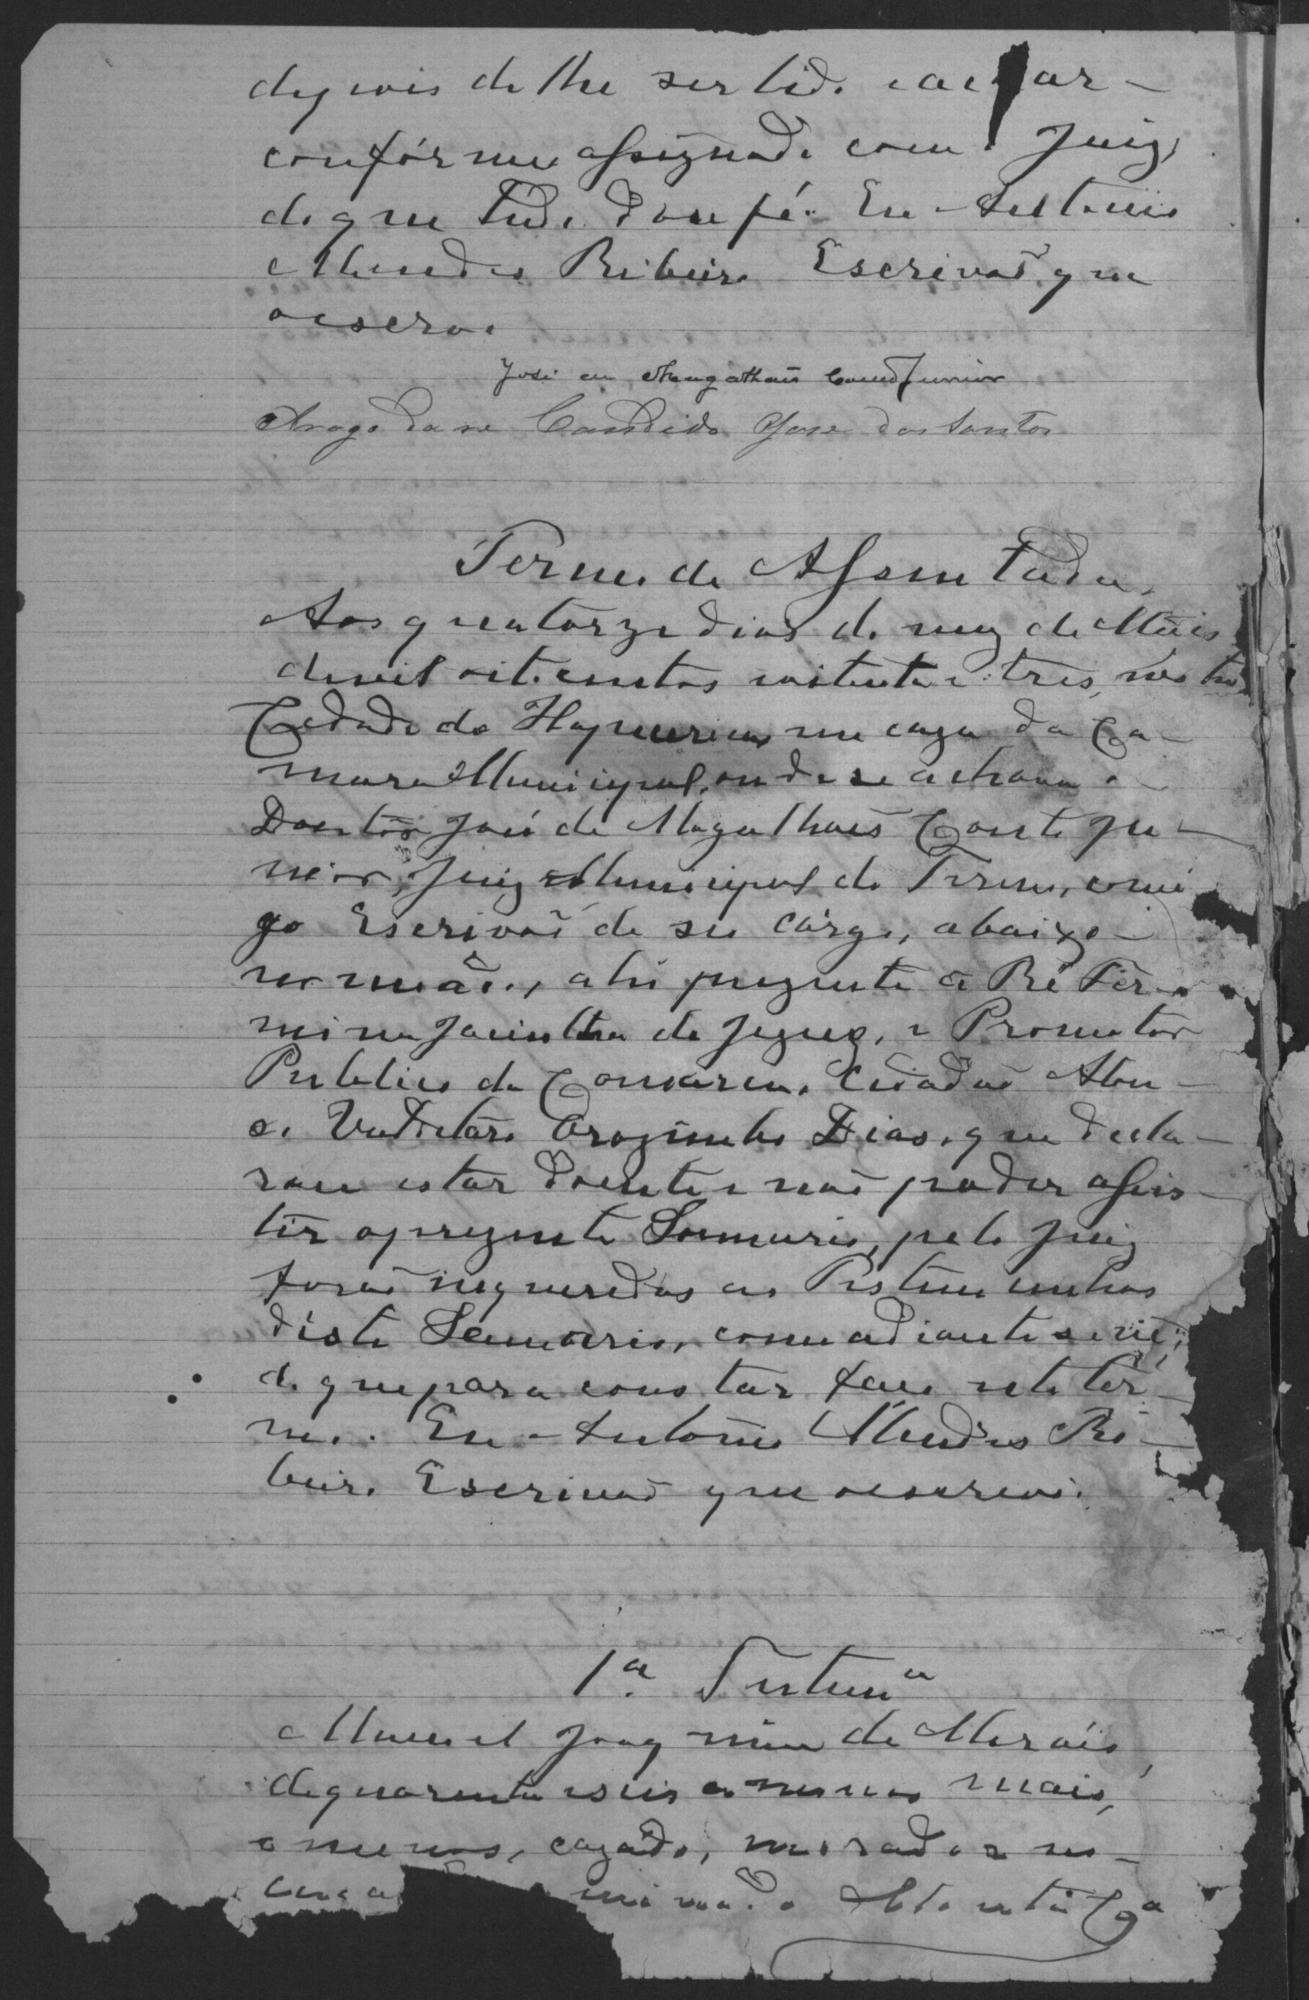 depois de lhe ser lido e achar
confórme assignado com o Juiz,
do que tudo dou fé. Eu Antonio
Mendes Ribeiro Escrivaõ que
o escrevi
José de Magalhaẽs Couto Junior
Arogo da re Candido Jose dos Santos
Termo de Assentada
Aos quatorze dias do mez de Maio
de mil oito centos oitenta e tres, nesta
Cidade de Itapemerim na caza da Ca-
mara Municipal, onde se achava o
Doutôr José de Magalhaẽs Couto Ju-
nior, Juiz Municipal do Termo, comi
go Escrivaõ de seu cargo, abaixo
nomeádo, ahi prezente a Ré Fer-
mina Jacintha de Jezuz, o Promotôr
Publico da Comarca, Cidadaõ
Orozimbo Dias, que decla-
rou estar doente e naõ poder assis-
tir o prezente Sommario, pelo Juiz
foraõ inqueridas as Testemunhas
déste Sommario, como adiante se vê;
do que para constar faço este ter-
mo. Eu Antonio Mendes Ri-
beiro Escrivaõ que o escrevi.
1ª Testemª
Manoel Joaquim de Moraes,
de quarenta e seis annos mais,
o menos, cazado, morador no